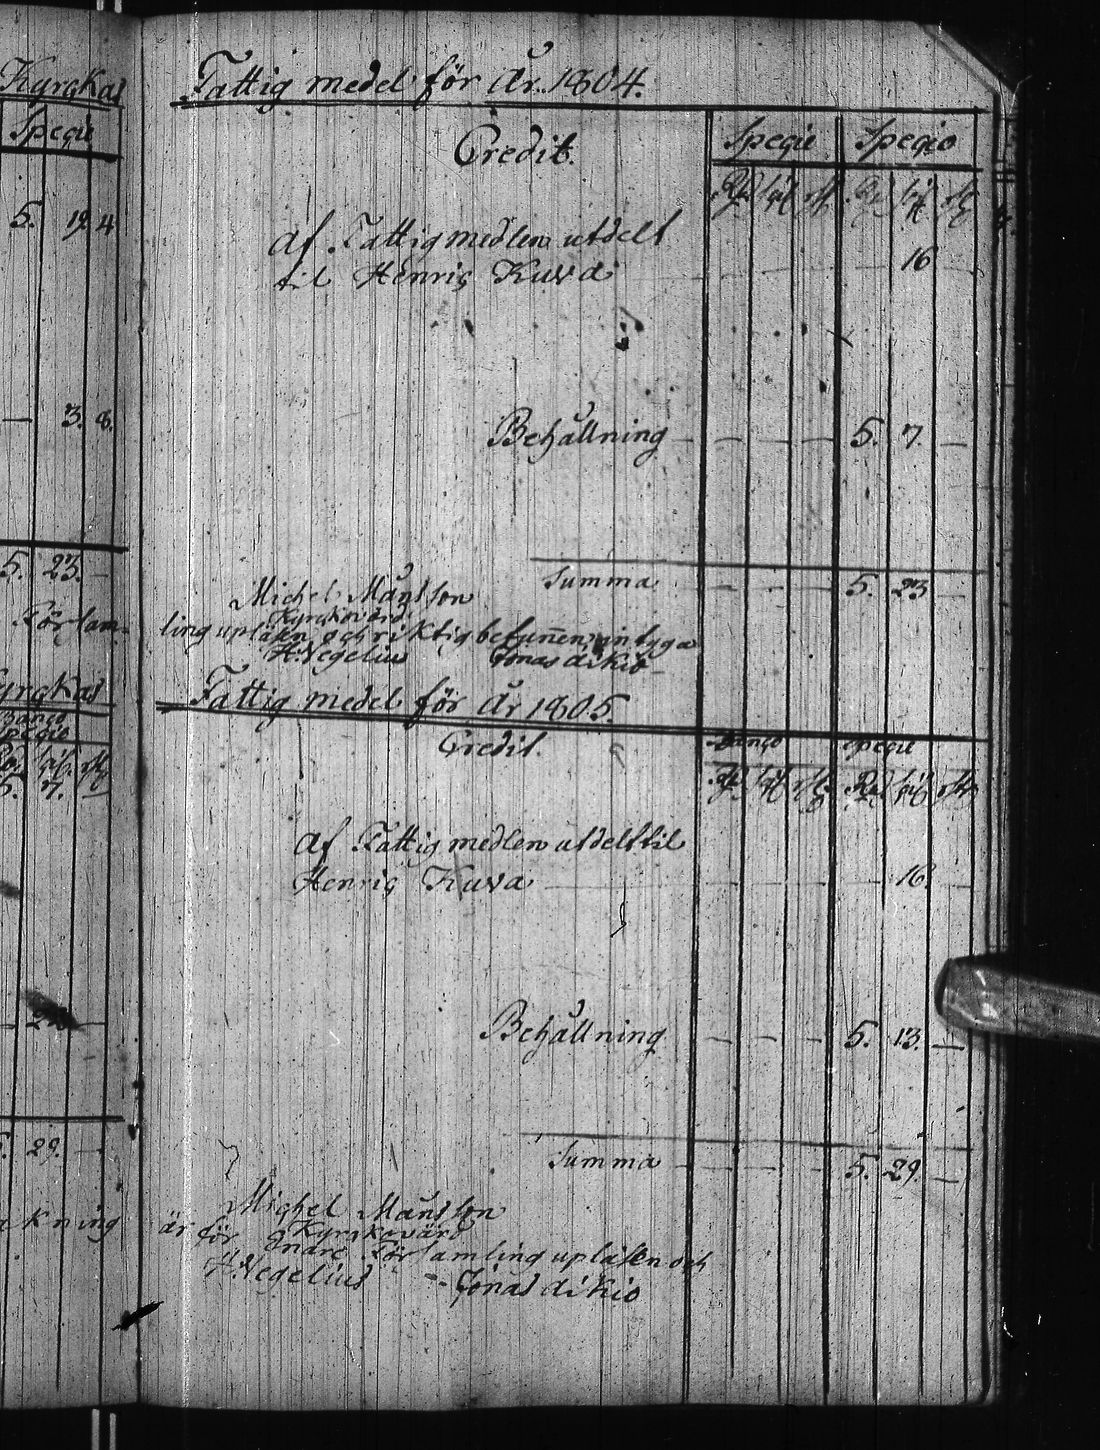 Kyrckas
Specie
5. 19. 4
— 3. 8.
5. 23. —
Församm-
Kyrckas
Banco
Specie
5. 7.
5. 29. —
kning
Fattig medel för År 1804.
Credit.
Specie Specie
Af Fattigmedlen utdelt
til Henric Kuva 16
Behållning — — — 5. 7. —
Summa — — — 5. 23 —
Michel Månsson
Kyrckovärd
ling upläsen och riktig befunnen, intyga
H. Vegelius Jonas dikio
Fattig medel för År 1805.
Credit.
Banco Specie
Af Fattigmedlen utdelt til
Henric Kuva 16.
Behållning — — — 5. 13. —
Summa — — — 5. 29. —
Michel Månsson
Kyrckovärd
är för andre Församling upläsen och
H. Vegelius Jonas dikio